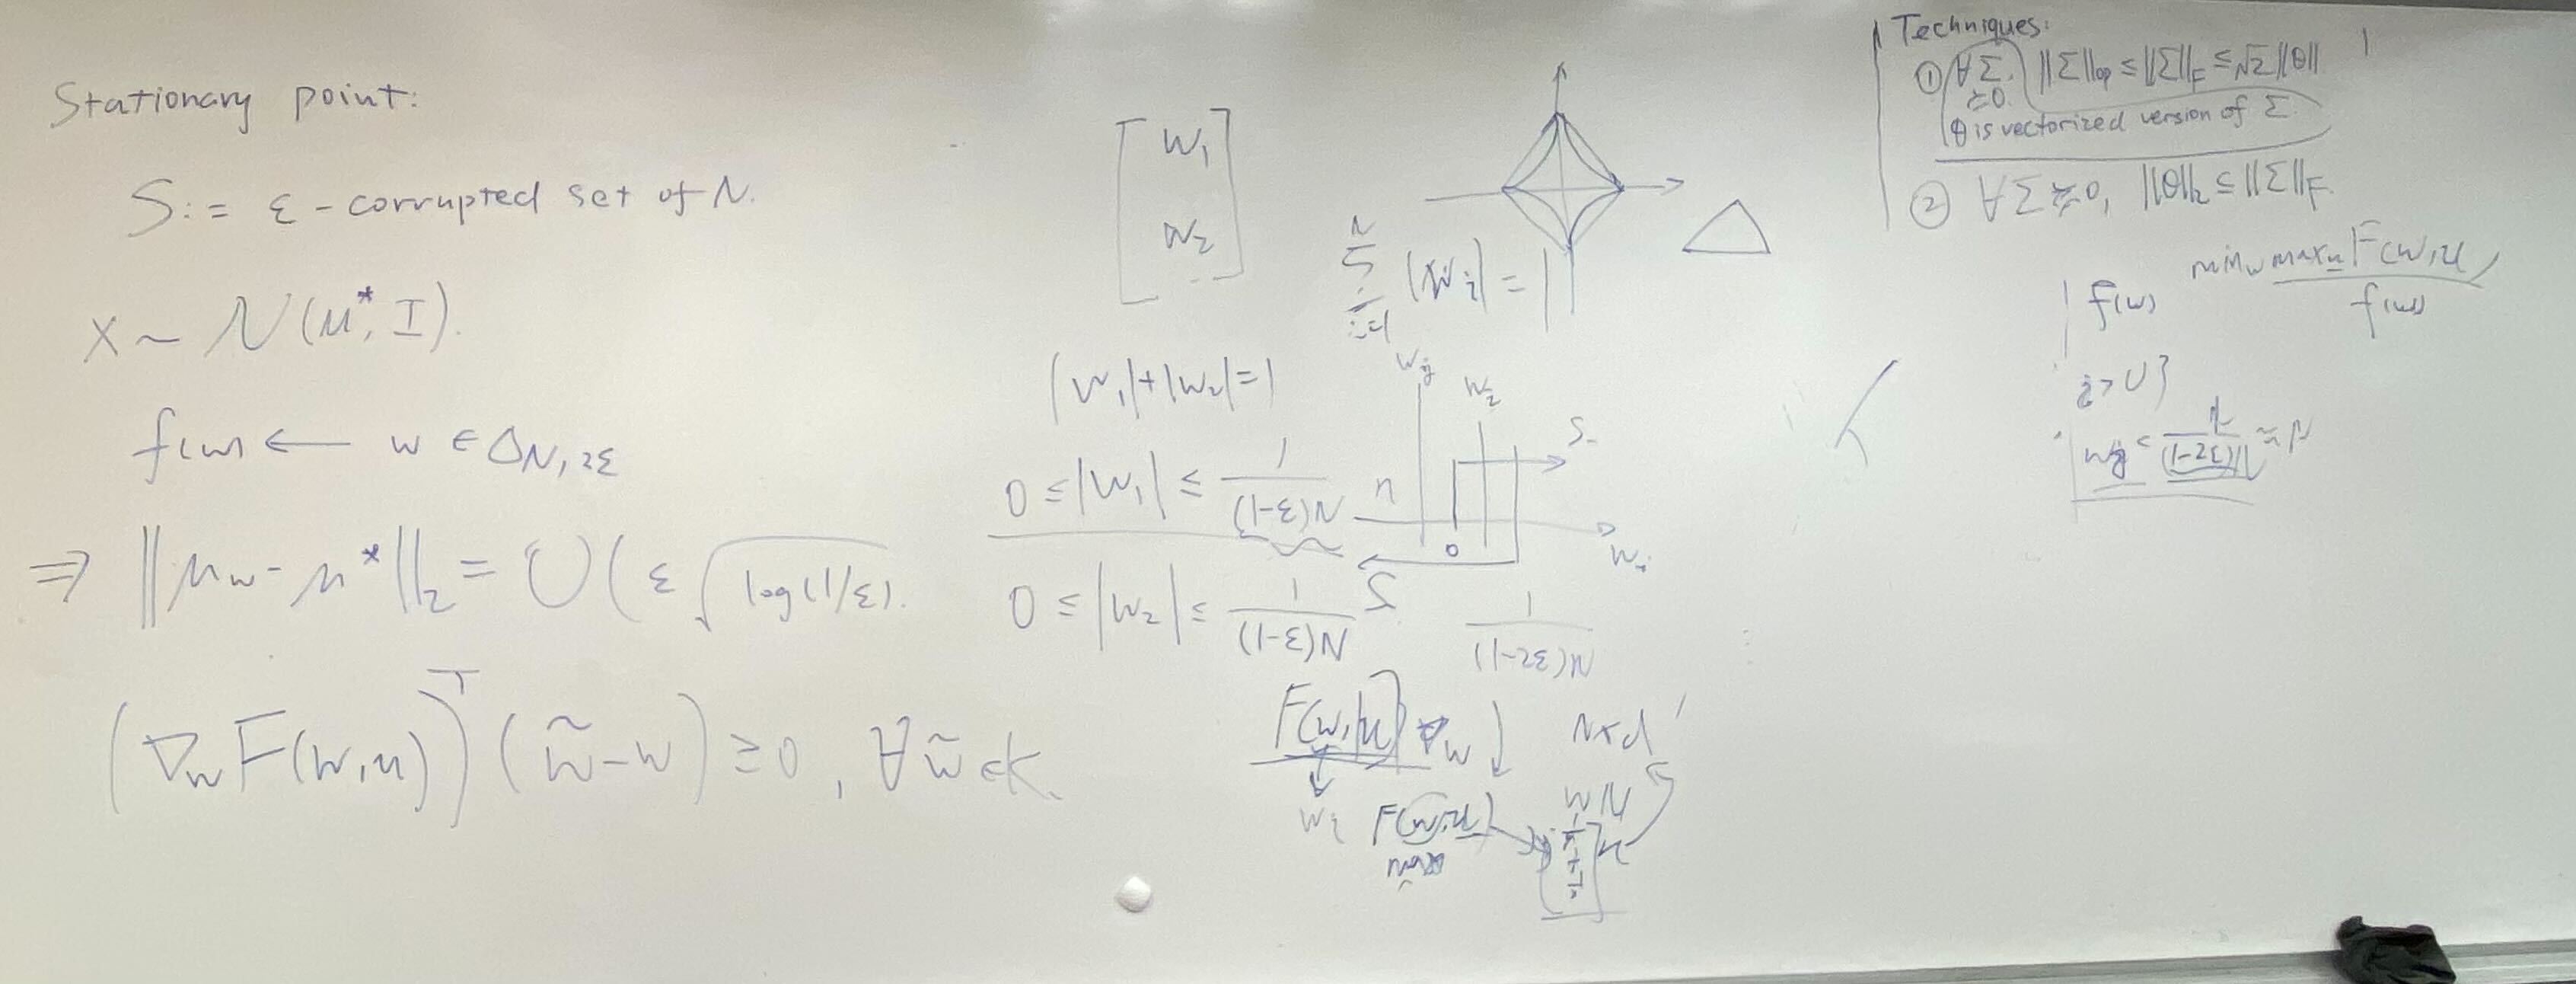 Stationary point:
S := ε-corrupted set of N.
X ~ N(μ*, I).
f(w) ← w ∈ Δ_{N,2ε}
⇒ ||μ_w - μ*||_2 = O(ε √log(1/ε).
(∇_w F(w,u))^T (w̃ - w) ≥ 0, ∀ w̃ ∈ K.
[ w_1
w_2 ]
|w_1| + |w_2| = 1
0 ≤ |w_1| ≤ 1/((1-ε)N)
0 ≤ |w_2| ≤ 1/((1-ε)N)
Σ_{i=1}^N |w_i| = 1
w_j
w_i
S-
n
0
1/((1-2ε)N)
F(w,u) ∇_w
w_i
F(w,u)
N×d
Techniques:
① ∀Σ ≽0. ||Σ||_op ≤ ||Σ||_F ≤ √2 ||θ||
θ is vectorized version of Σ.
② ∀Σ ≽ 0, ||θ||_2 ≤ ||Σ||_F.
min_w max_u F(w,u)
f(w)
f(w)